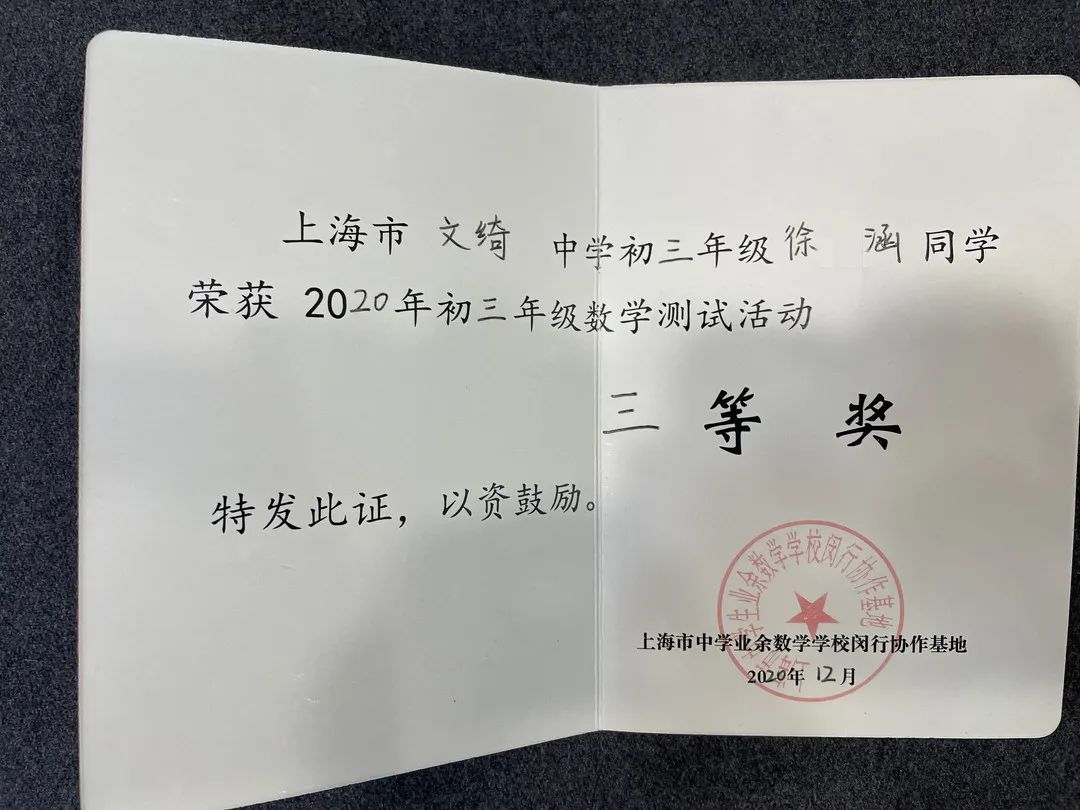 上海市 文绮 中学初三年级徐 涵 同学
荣获 2020年初三年级数学测试活动
三 等 奖
特发此证，以资鼓励。
上海市中学业余数学学校闵行协作基地
2020年 12月